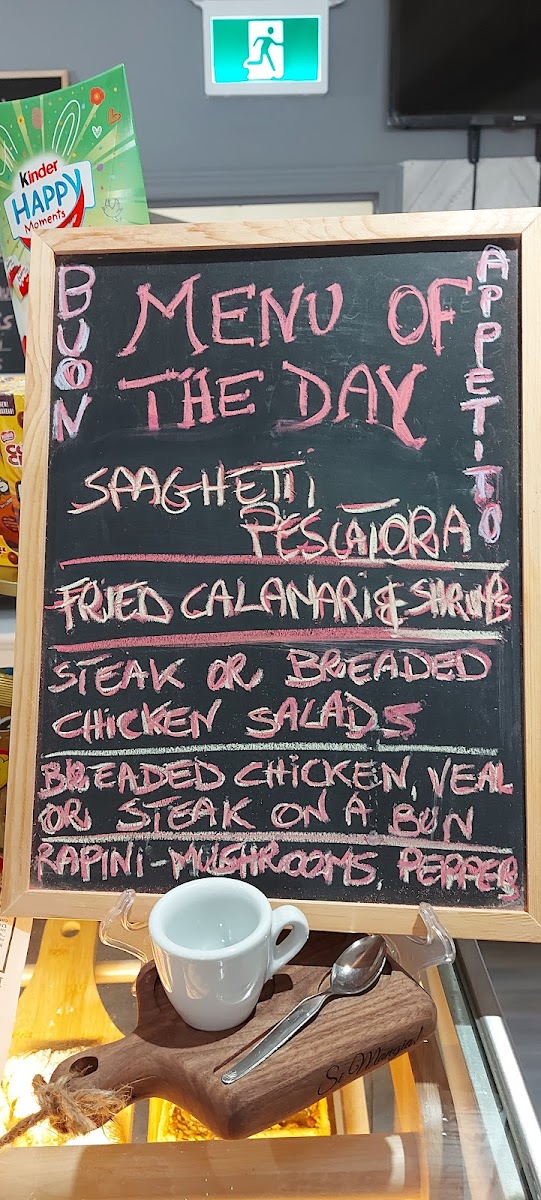 Kinder
HAPPY
Moments
BUON
MENU OF
THE DAY
APPETITO
SPAGHETTI
PESCATORA
FRIED CALAMARI & SHRIMPS
STEAK OR BREADED
CHICKEN SALADS
BREADED CHICKEN, VEAL
OR STEAK ON A BUN
RAPINI-MUSHROOMS PEPPERS
Si Mangia!